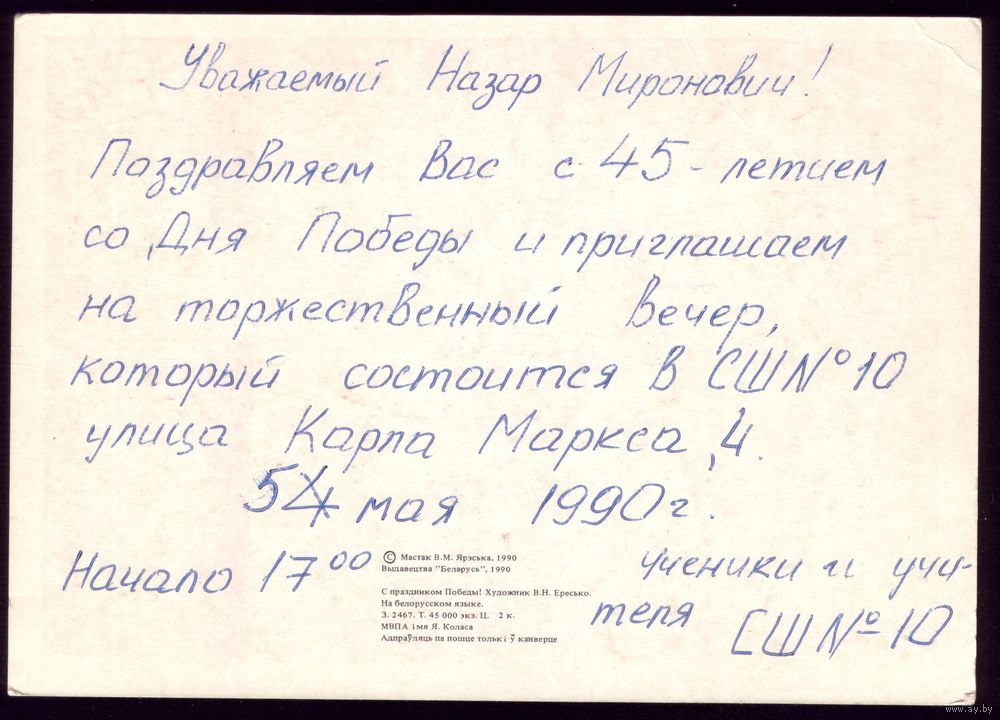 Уважаемый Назар Миронович!
Поздравляем Вас с 45-летием
со Дня Победы и приглашаем
на торжественный вечер,
который состоится в СШ №10
улица Карла Маркса, 4.
5 мая 1990 г.
Начало 17⁰⁰
© Мастак В.М. Ярэська, 1990
Выдавецтва "Беларусь", 1990
С праздником Победы! Художник В.Н. Ересько.
На белорусском языке.
З. 2467. Т. 45 000 экз. Ц. 2 к.
МВПА імя Я. Коласа
Адпраўляць па пошце толькі ў канверце
ученики и учи-
теля
СШ №10
www.ay.by